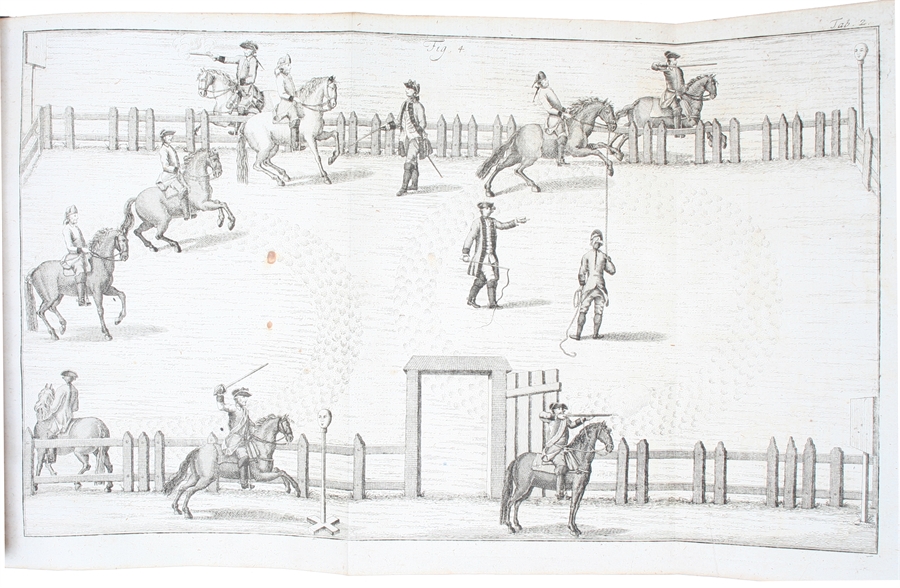 Fig. 4
Tab. 2